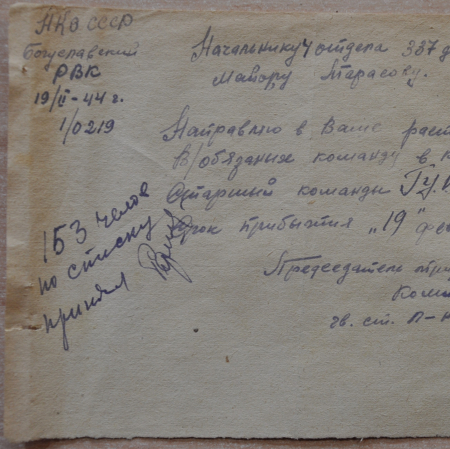 НКО СССР
Богуславский
РВК
19/II-44 г.
1/0219
Начальнику 4 отдела 337 д
Майору Тарасову.
Направляю в Ваше расп
В/обязаных команду в к
Старший команды Гу
Срок прибытия „19" фе
Председатель
Ком
гв. ст. Л-н
153 челов
по списку
принял